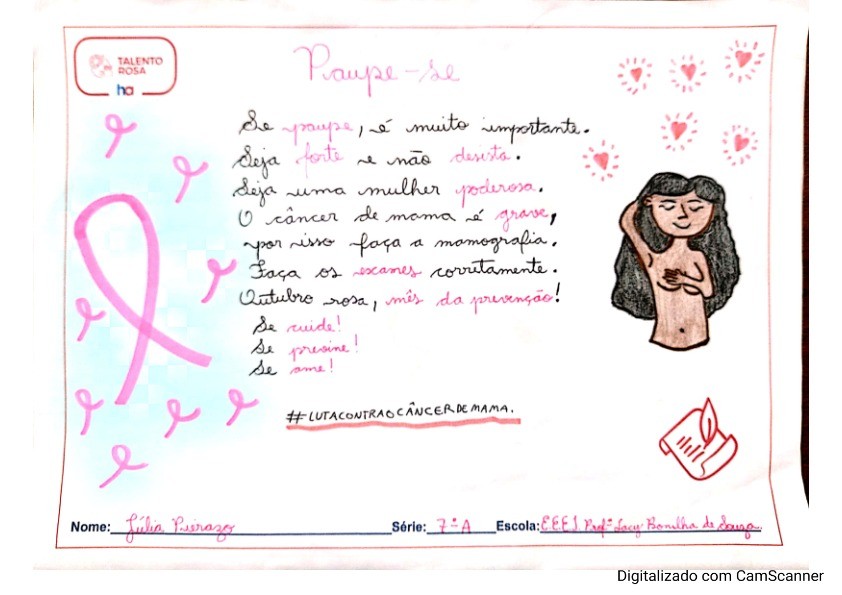 TALENTO
ROSA
ha
Paupe-se
Se paupe, é muito importante.
Seja forte e não desista.
Seja uma mulher poderosa.
O câncer de mama é grave,
por isso faça a mamografia.
Faça os exames corretamente.
Outubro rosa, mês da prevenção!
Se cuide!
Se previne!
Se ame!
#LUTACONTRAOCÂNCERDEMAMA.
Nome: Júlia Pierazo Série: 7ª A Escola: E.E.E.I. Profª Lacy Bonilha de Souza
Digitalizado com CamScanner